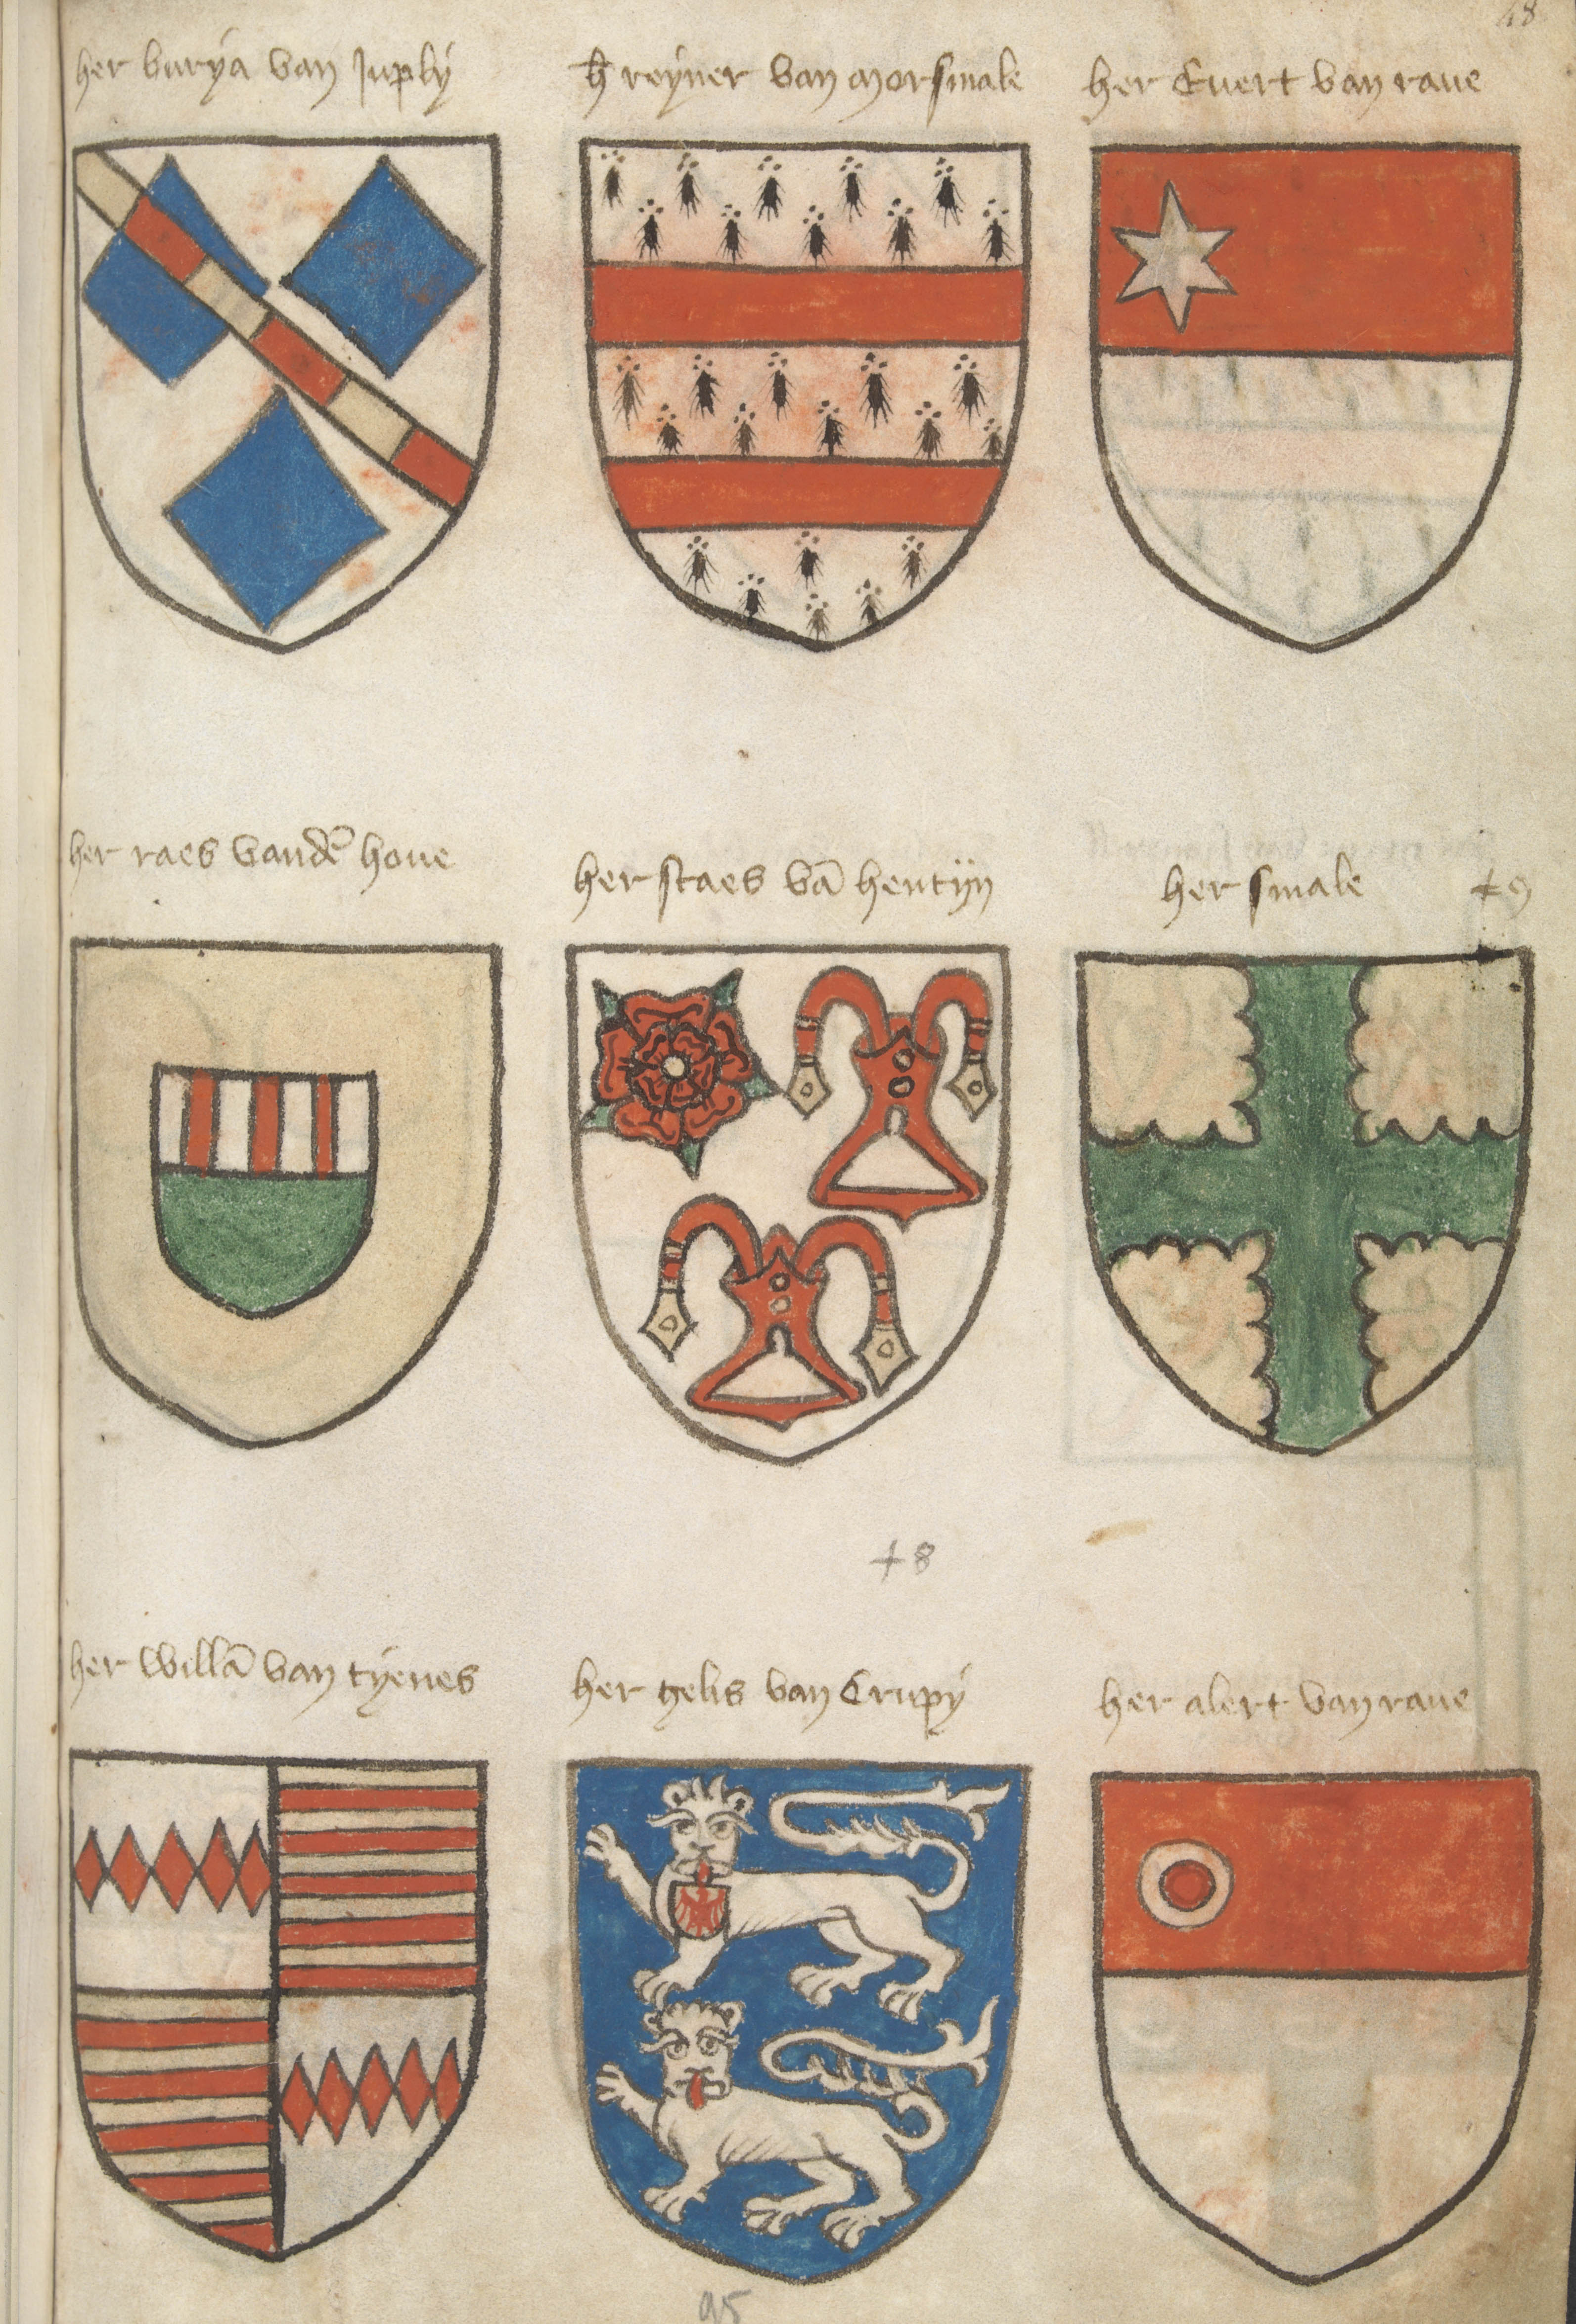 48
her burya van Juply
h reyner van morsmale
her Evert van raue
her raes vandē houe
her staes vā hentijn
her smale
+9
+8
her willā van tyenes
her gelis van Crupy
her alert van raue
95